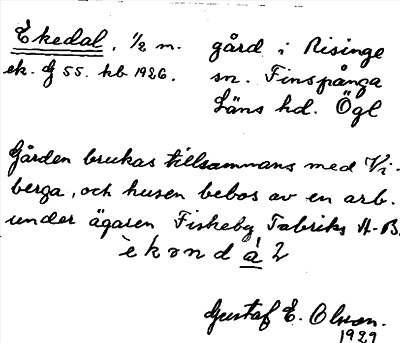 Ekedal, ½ m. gård i Risinge
ek. 55. kb 1926. sn. Finspånga
Läns hd. Ögl
Gården brukas tillsammans med Vi-
berga, och husen bebos av en arb.
under ägaren Fiskeby Fabriks A-B.
Gustaf E. Olson.
1929